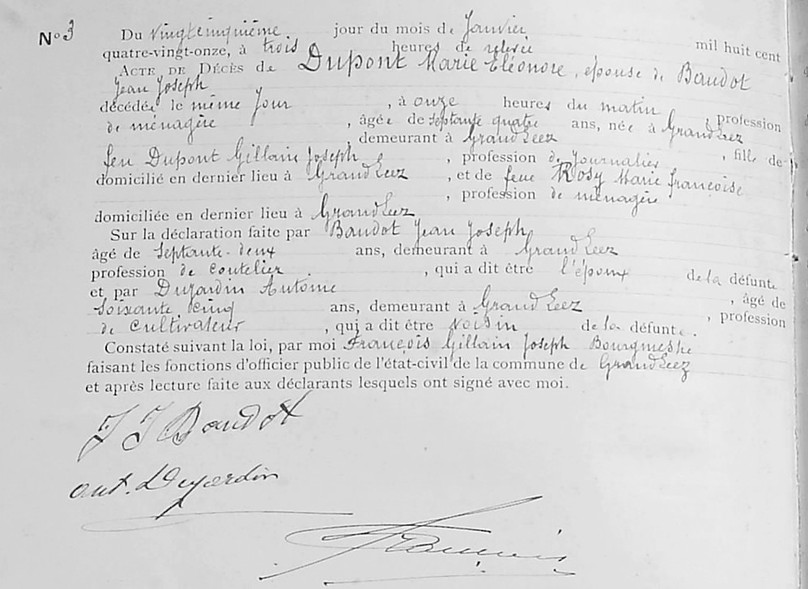 N° 3
Du vingtcinquième jour du mois de Janvier mil huit cent
quatre-vingt-onze, à trois heures de relevée
ACTE DE DÉCÈS de Dupont Marie Eléonore, épouse de Baudot
Jean Joseph
décédée le même jour, à onze heures du matin, profession
de ménagère, âgée de septante quatre ans, née à GrandLeez
demeurant à GrandLeez, fille de
feu Dupont Gillain Joseph, profession de Journalier
domicilié en dernier lieu à GrandLeez, et de feue Rosy Marie françoise
, profession de ménagère
domiciliée en dernier lieu à GrandLeez
Sur la déclaration faite par Baudot Jean Joseph
âgé de septante-deux ans, demeurant à GrandLeez
profession de coutelier, qui a dit être l'époux de la défunte
et par Dujardin Antoine, âgé de
soixante cinq ans, demeurant à GrandLeez, profession
de cultivateur, qui a dit être voisin de la défunte.
Constaté suivant la loi, par moi François Gillain Joseph Bourgmestre
faisant les fonctions d'officier public de l'état-civil de la commune de GrandLeez
et après lecture faite aux déclarants lesquels ont signé avec moi.
J J Baudot
ant. Dujardin
François